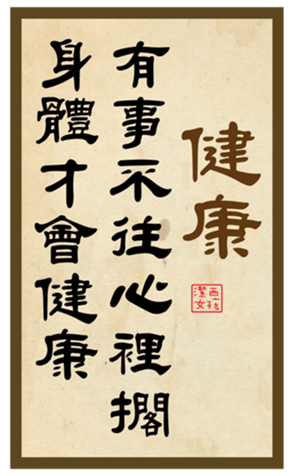 健康
有事不往心裡擱
身體才會健康